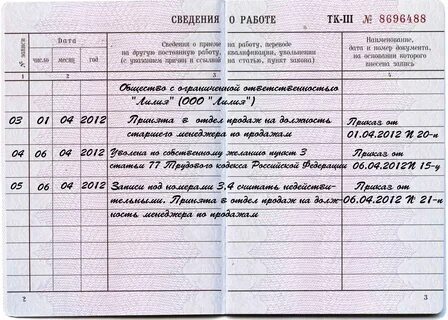 СВЕДЕНИЯ О РАБОТЕ ТК-III № 8696488
№ записи Дата Сведения о приеме на работу, переводе на другую постоянную работу, квалификации, увольнении (с указанием причин и ссылкой на статью, пункт закона) Наименование, дата и номер документа, на основании которого внесена запись
число месяц год
1 2 3 4
Общество с ограниченной ответственностью
"Лилия" (ООО "Лилия")
03 01 04 2012 Принята в отдел продаж на должность Приказ от
старшего менеджера по продажам 01.04.2012 № 20-п
04 06 04 2012 Уволена по собственному желанию пункт 3 Приказ от
статьи 77 Трудового кодекса Российской Федерации 06.04.2012 № 15-у
05 06 04 2012 Записи под номерами 3,4 считать недействи- Приказ от
тельными. Принята в отдел продаж на долж- 06.04.2012 № 21-п
ность менеджера по продажам
2 3